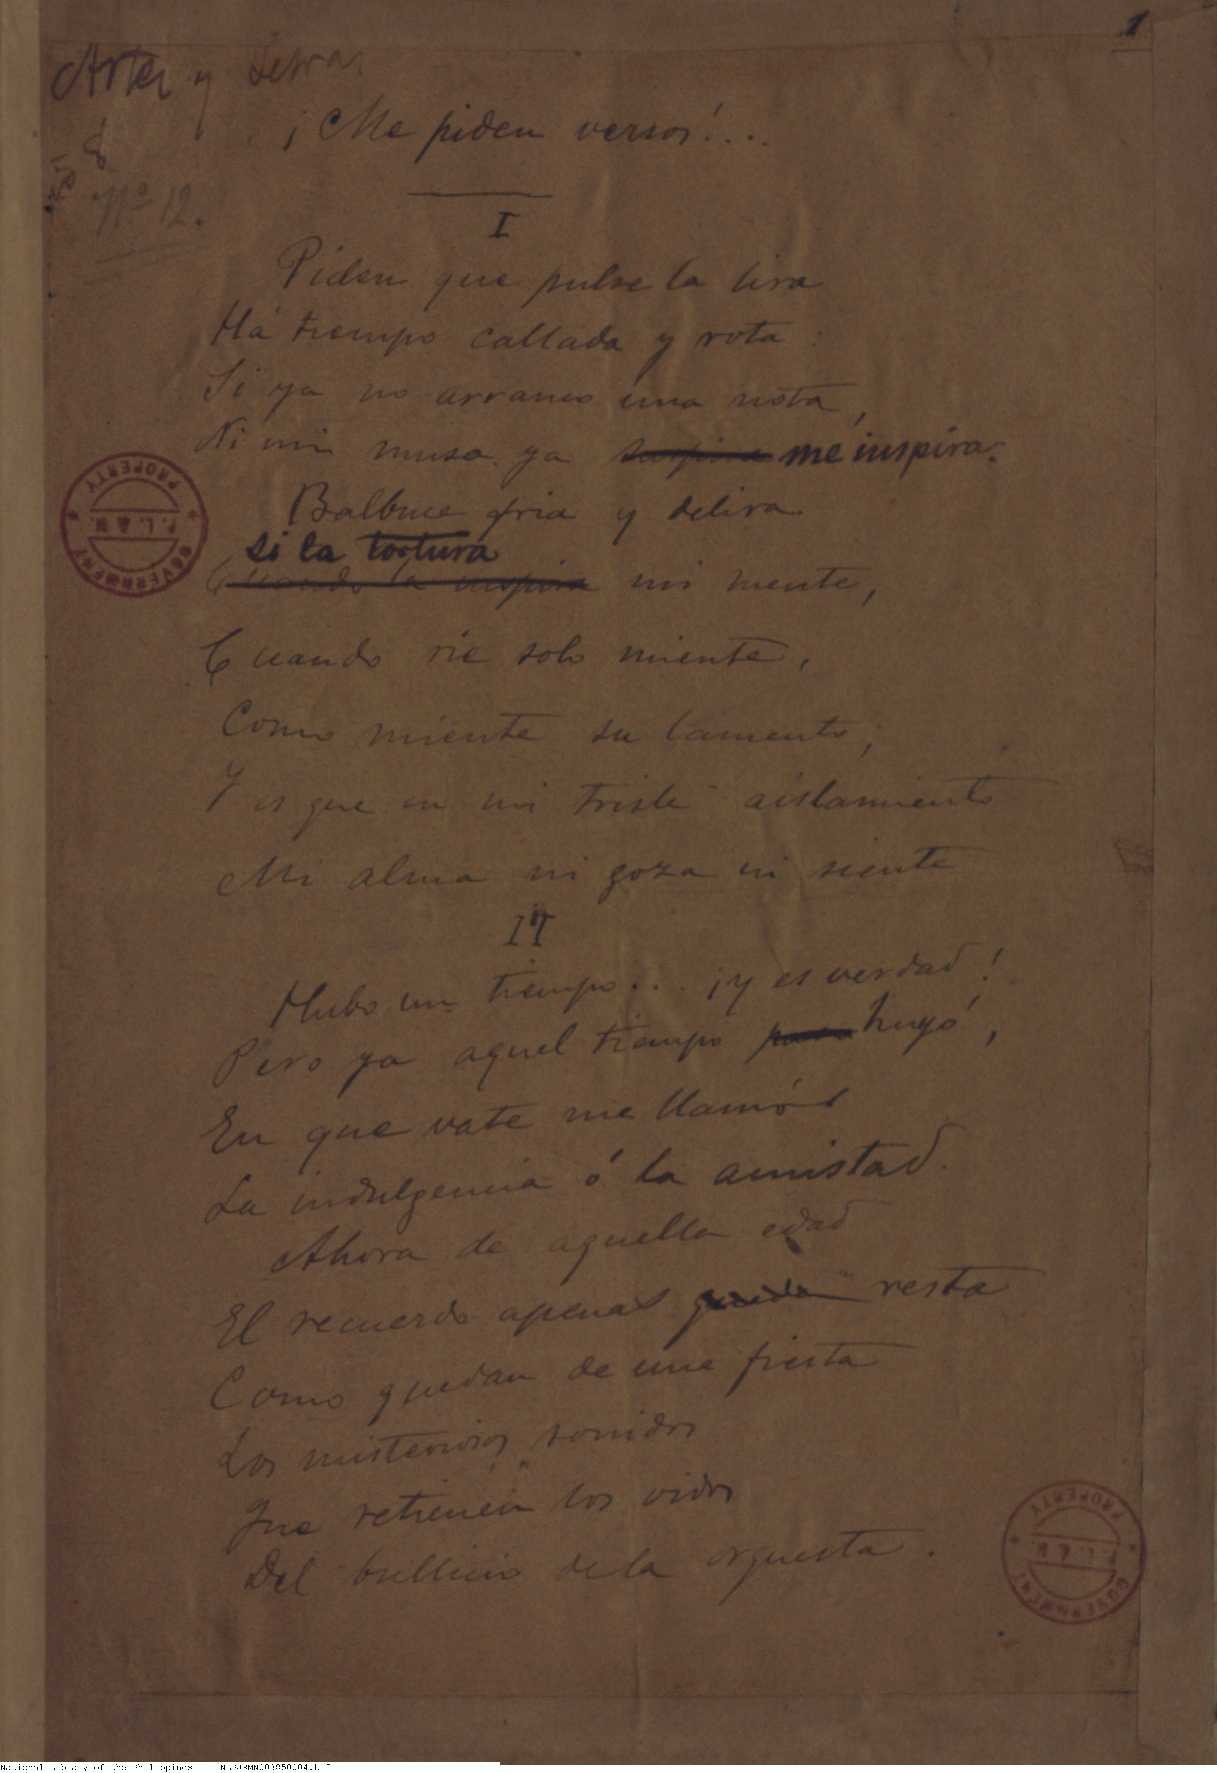 1
Artes y Letras
¡Me piden versos!...
8
Nº 12.
I
Piden que pulse la lira
Há tiempo callada y rota:
Si ya no arranco una nota,
Ni mi musa ya suspira me inspira.
Balbuce fria y delira
si la tortura
Cuando la inspira mi mente,
Cuando rie solo miente,
Como miente su lamento;
Y es que en mi triste aislamiento
Mi alma ni goza ni siente
II
Hubo un tiempo... ¡y es verdad!
Pero ya aquel tiempo huyó,
En que vate me llamó
La indulgencia ó la amistad.
Ahora de aquella edad
El recuerdo apenas queda resta
Como quedan de una fiesta
Los misteriosos sonidos
Que retienen los oidos
Del bullicio de la orquesta.
PROPERTY
P. L. & M.
GOVERNMENT
PROPERTY
P. L. & M.
GOVERNMENT
National Library of the Philippines